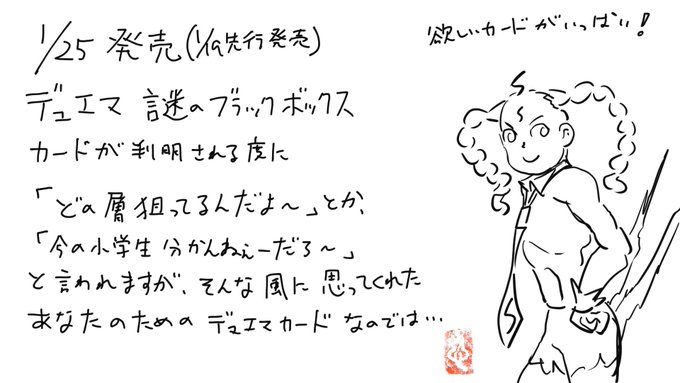 1/25 発売(1/19先行発売)
欲しいカードがいっぱい!
デュエマ 謎のブラックボックス
カードが判明される度に
「どの層狙ってるんだよ〜」とか、
「今の小学生分かんねぇーだろ〜」
と言われますが、そんな風に思ってくれた
あなたのためのデュエマカードなのでは…